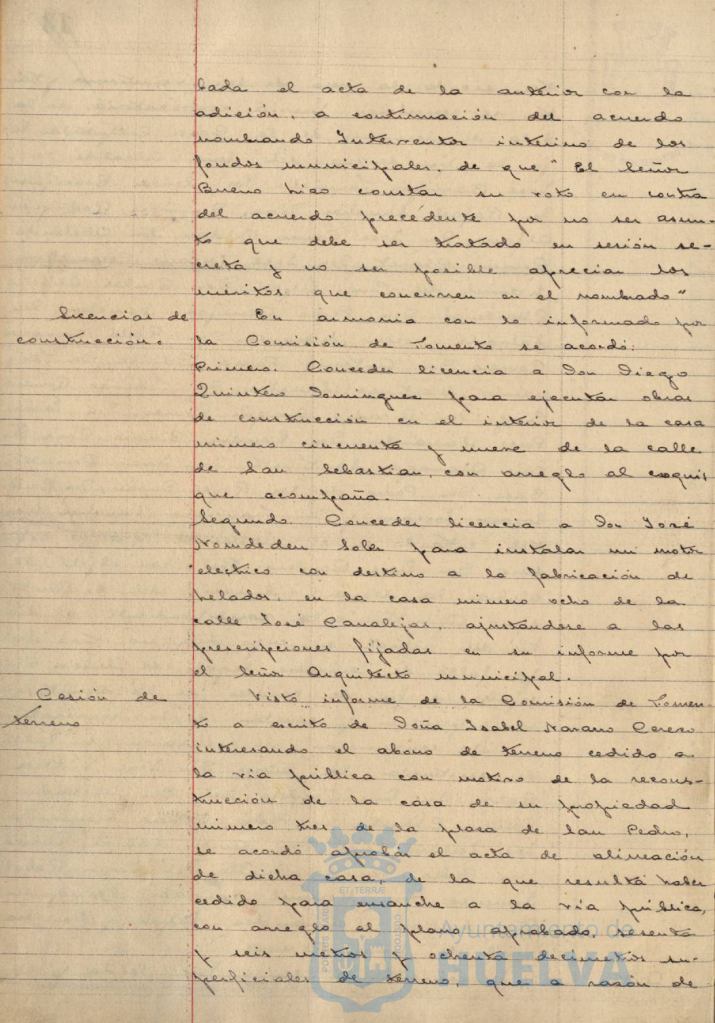 bada el acta de la anterior con la
adición, a continuación del acuerdo
nombrando Interventor interino de los
fondos municipales, de que "El Señor
Bueno hizo constar su voto en contra
del acuerdo precedente por no ser asun-
to que debe ser tratado en sesión se-
creta y no ser posible apreciar los
méritos que concurren en el nombrado"
Licencias de
construcción.
En armonia con lo informado por
la Comisión de Fomento se acordó:
Primero. Conceder licencia a Don Diego
Quintero Dominguez para ejecutar obras
de construcción en el interior de la casa
número cincuenta y nueve de la calle
de San Sebastian, con arreglo al croquis
que acompaña.
Segundo. Conceder licencia a Don José
Nomdedeu Soler para instalar un motor
electrico con destino a la fabricación de
helados, en la casa número ocho de la
calle José Canalejas, ajustándose a las
prescripciones fijadas en su informe por
el Señor Arquitecto municipal.
Cesión de
terreno
Visto informe de la Comisión de Fomen-
to a escrito de Doña Isabel Navarro Cerezo
interesando el abono de terreno cedido a
la via pública con motivo de la recons-
trucción de la casa de su propiedad
número tres de la plaza de San Pedro,
se acordó aprobar el acta de alineación
de dicha casa, de la que resulta haber
cedido para ensanche a la via pública,
con arreglo al plano aprobado, sesenta
y seis metros y ochenta decimetros su-
perficiales de terreno, que a razón de
Ayuntamiento de
HUELVA